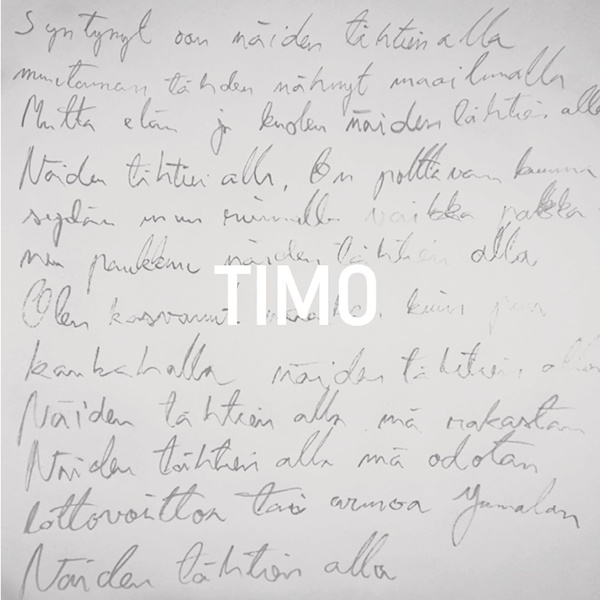 Syntynyt oon näiden tähtien alla
muutaman tähden nähnyt maailmalla
Mutta elän ja kuolen näiden tähtien alla
Näiden tähtien alla. On polttavan kuuma
sydän mun rinnalla vaikka pakka
niin paukkuu näiden tähtien alla
TIMO
Olen kasvanut kuin puu
kankahalla näiden tähtien alla
Näiden tähtien alla mä rakastan
Näiden tähtien alla mä odotan
Lottovoittoa tai armoa Jumalan
Näiden tähtien alla